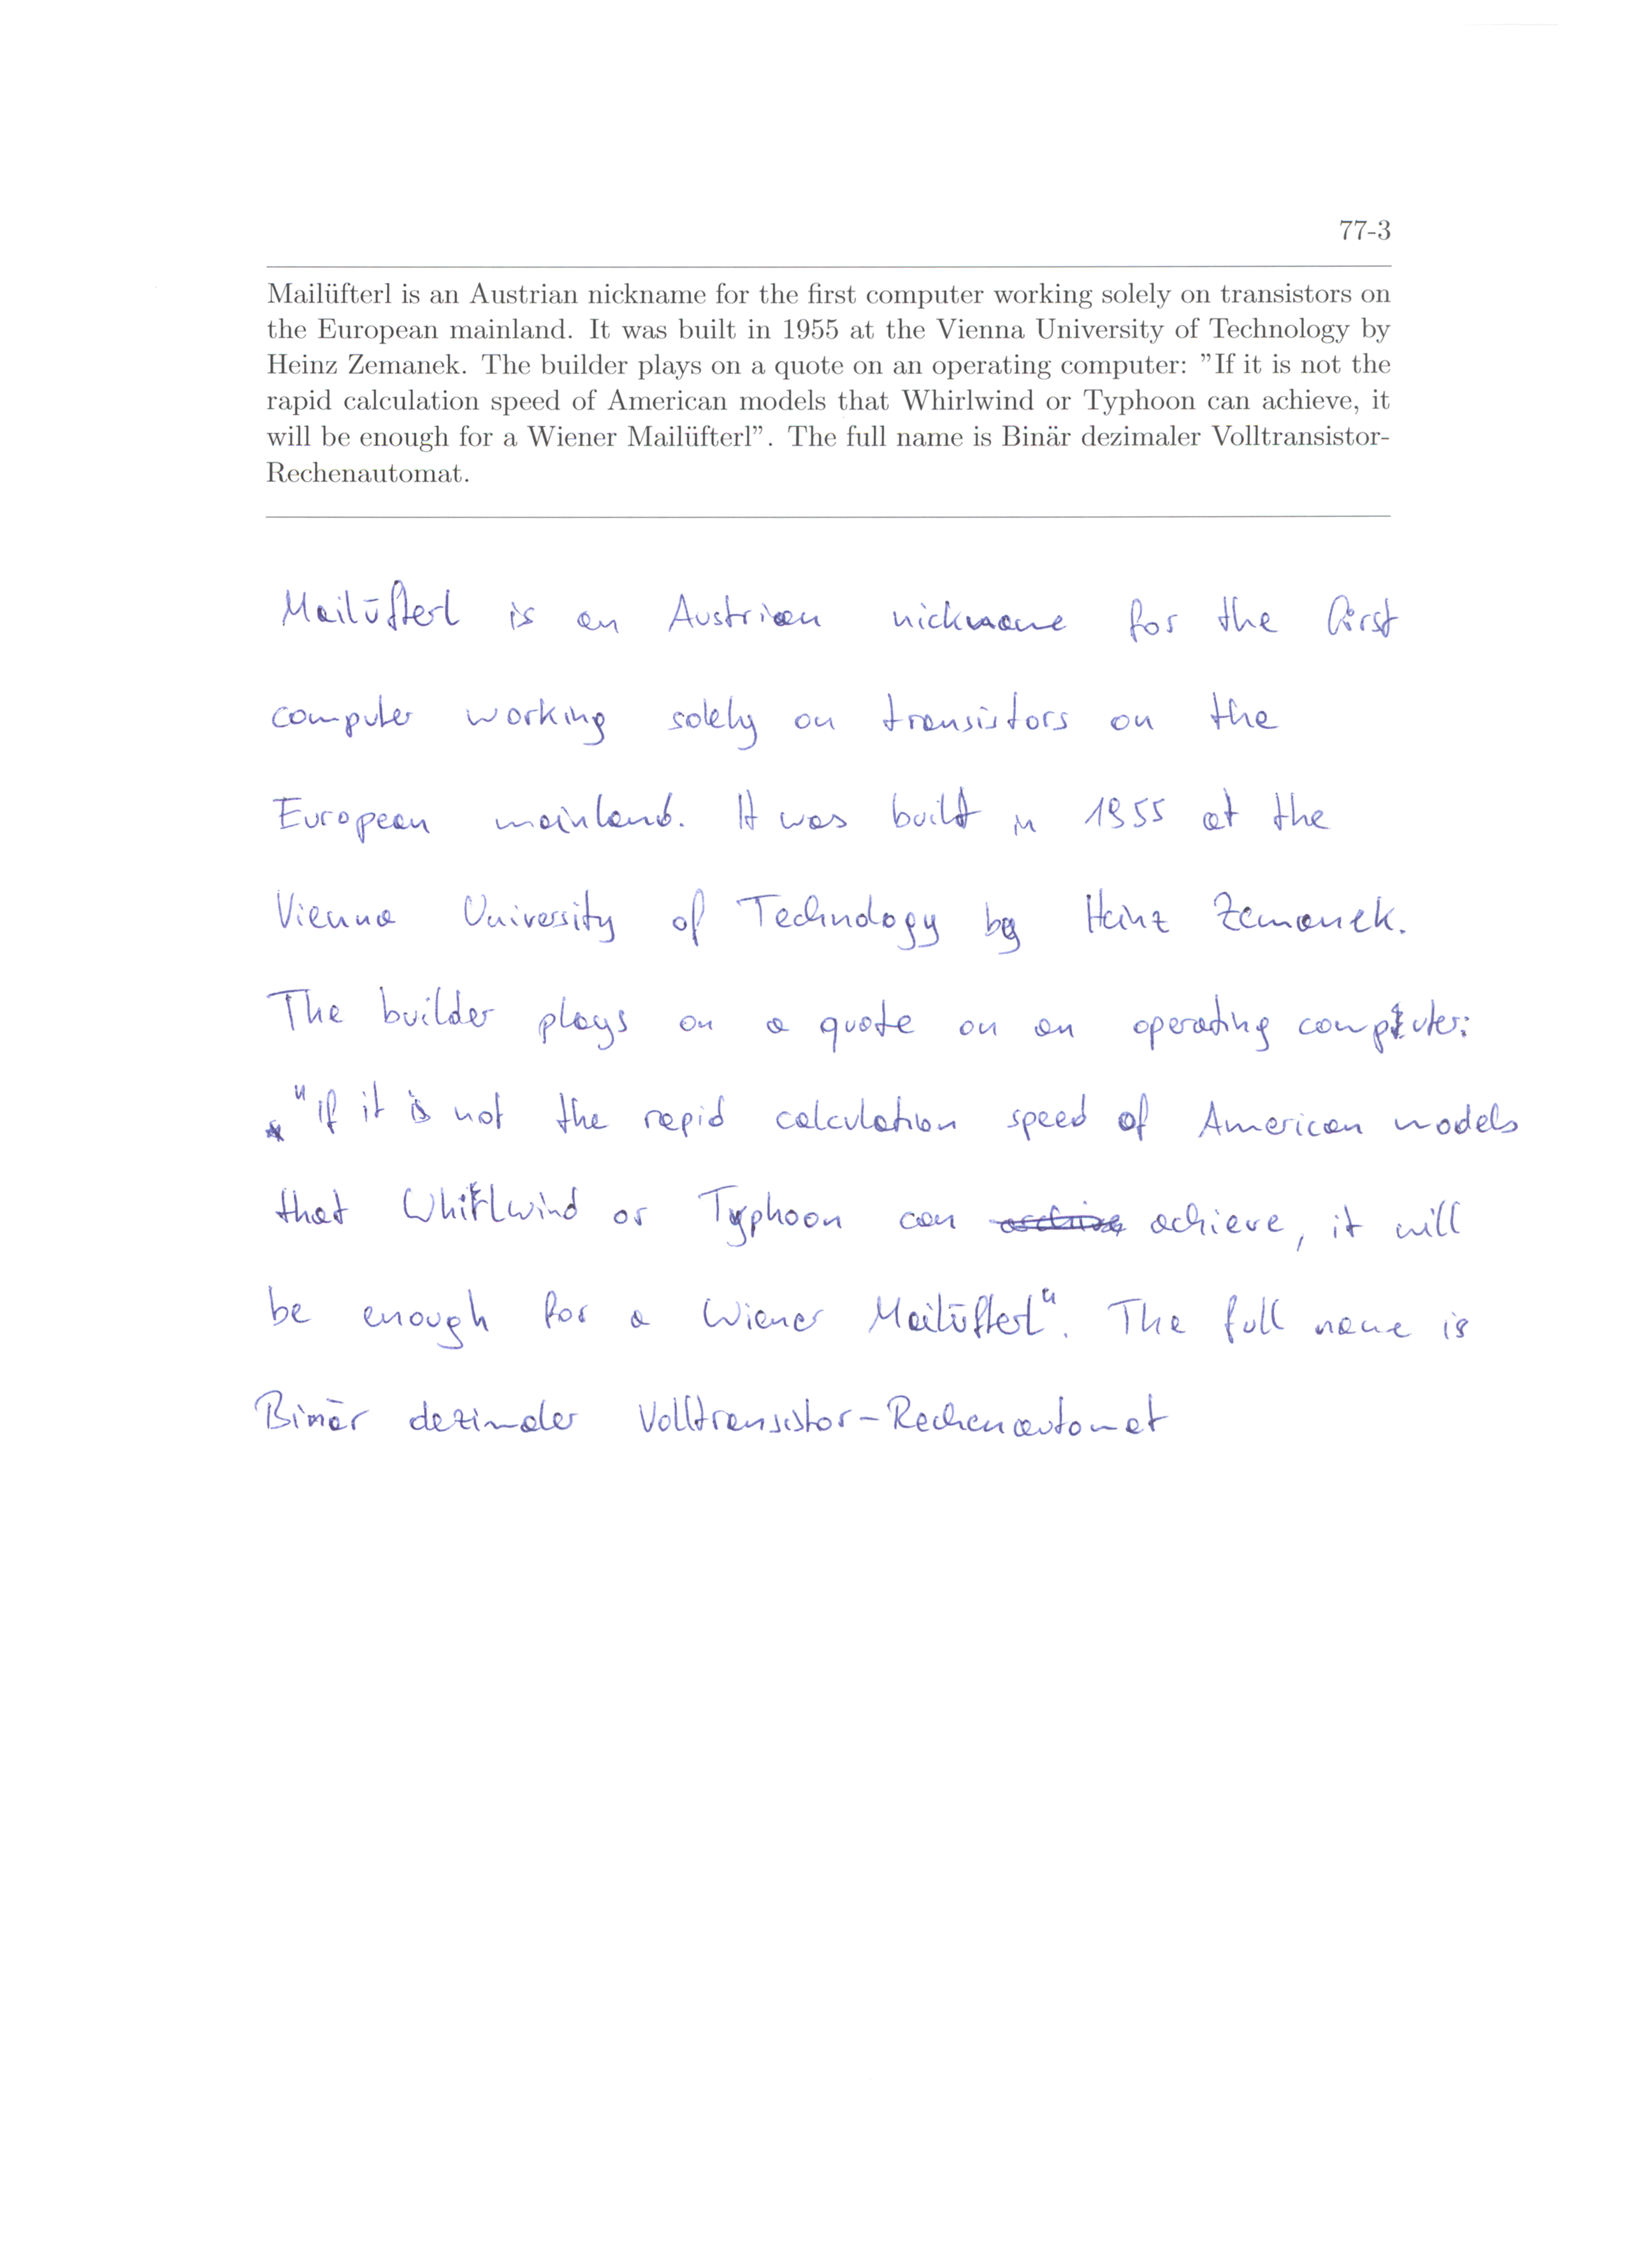 77-3
Mailüfterl is an Austrian nickname for the first computer working solely on transistors on
the European mainland. It was built in 1955 at the Vienna University of Technology by
Heinz Zemanek. The builder plays on a quote on an operating computer: ”If it is not the
rapid calculation speed of American models that Whirlwind or Typhoon can achieve, it
will be enough for a Wiener Mailüfterl”. The full name is Binär dezimaler Volltransistor-
Rechenautomat.
Mailüfterl is an Austrian nickname for the first
computer working solely on transistors on the
European mainland. It was built in 1955 at the
Vienna University of Technology by Heinz Zemanek.
The builder plays on a quote on an operating computer:
"If it is not the rapid calculation speed of American models
that Whirlwind or Typhoon can achieve, it will
be enough for a Wiener Mailüfterl". The full name is
Binär dezimaler Volltransistor-Rechenautomat